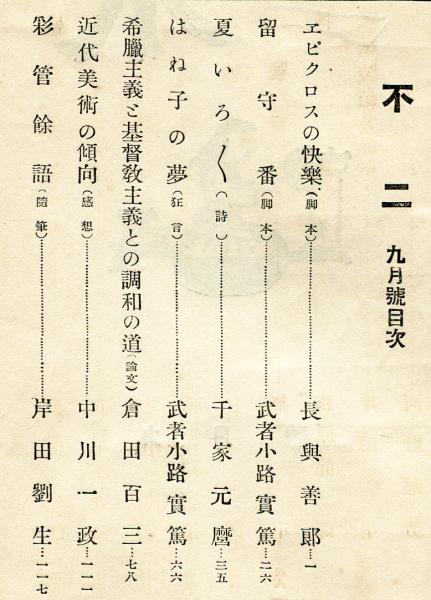 不二 九月號目次
ヱピクロスの快樂(脚本)…………長與善郎…一
留守番(脚本)…………武者小路實篤…二六
夏いろ〱(詩)…………千家元麿…三五
はね子の夢(狂言)…………武者小路實篤…六六
希臘主義と基督敎主義との調和の道(論文)倉田百三…七八
近代美術の傾向(感想)…………中川一政…一一一
彩管餘語(隨筆)…………岸田劉生…一一七